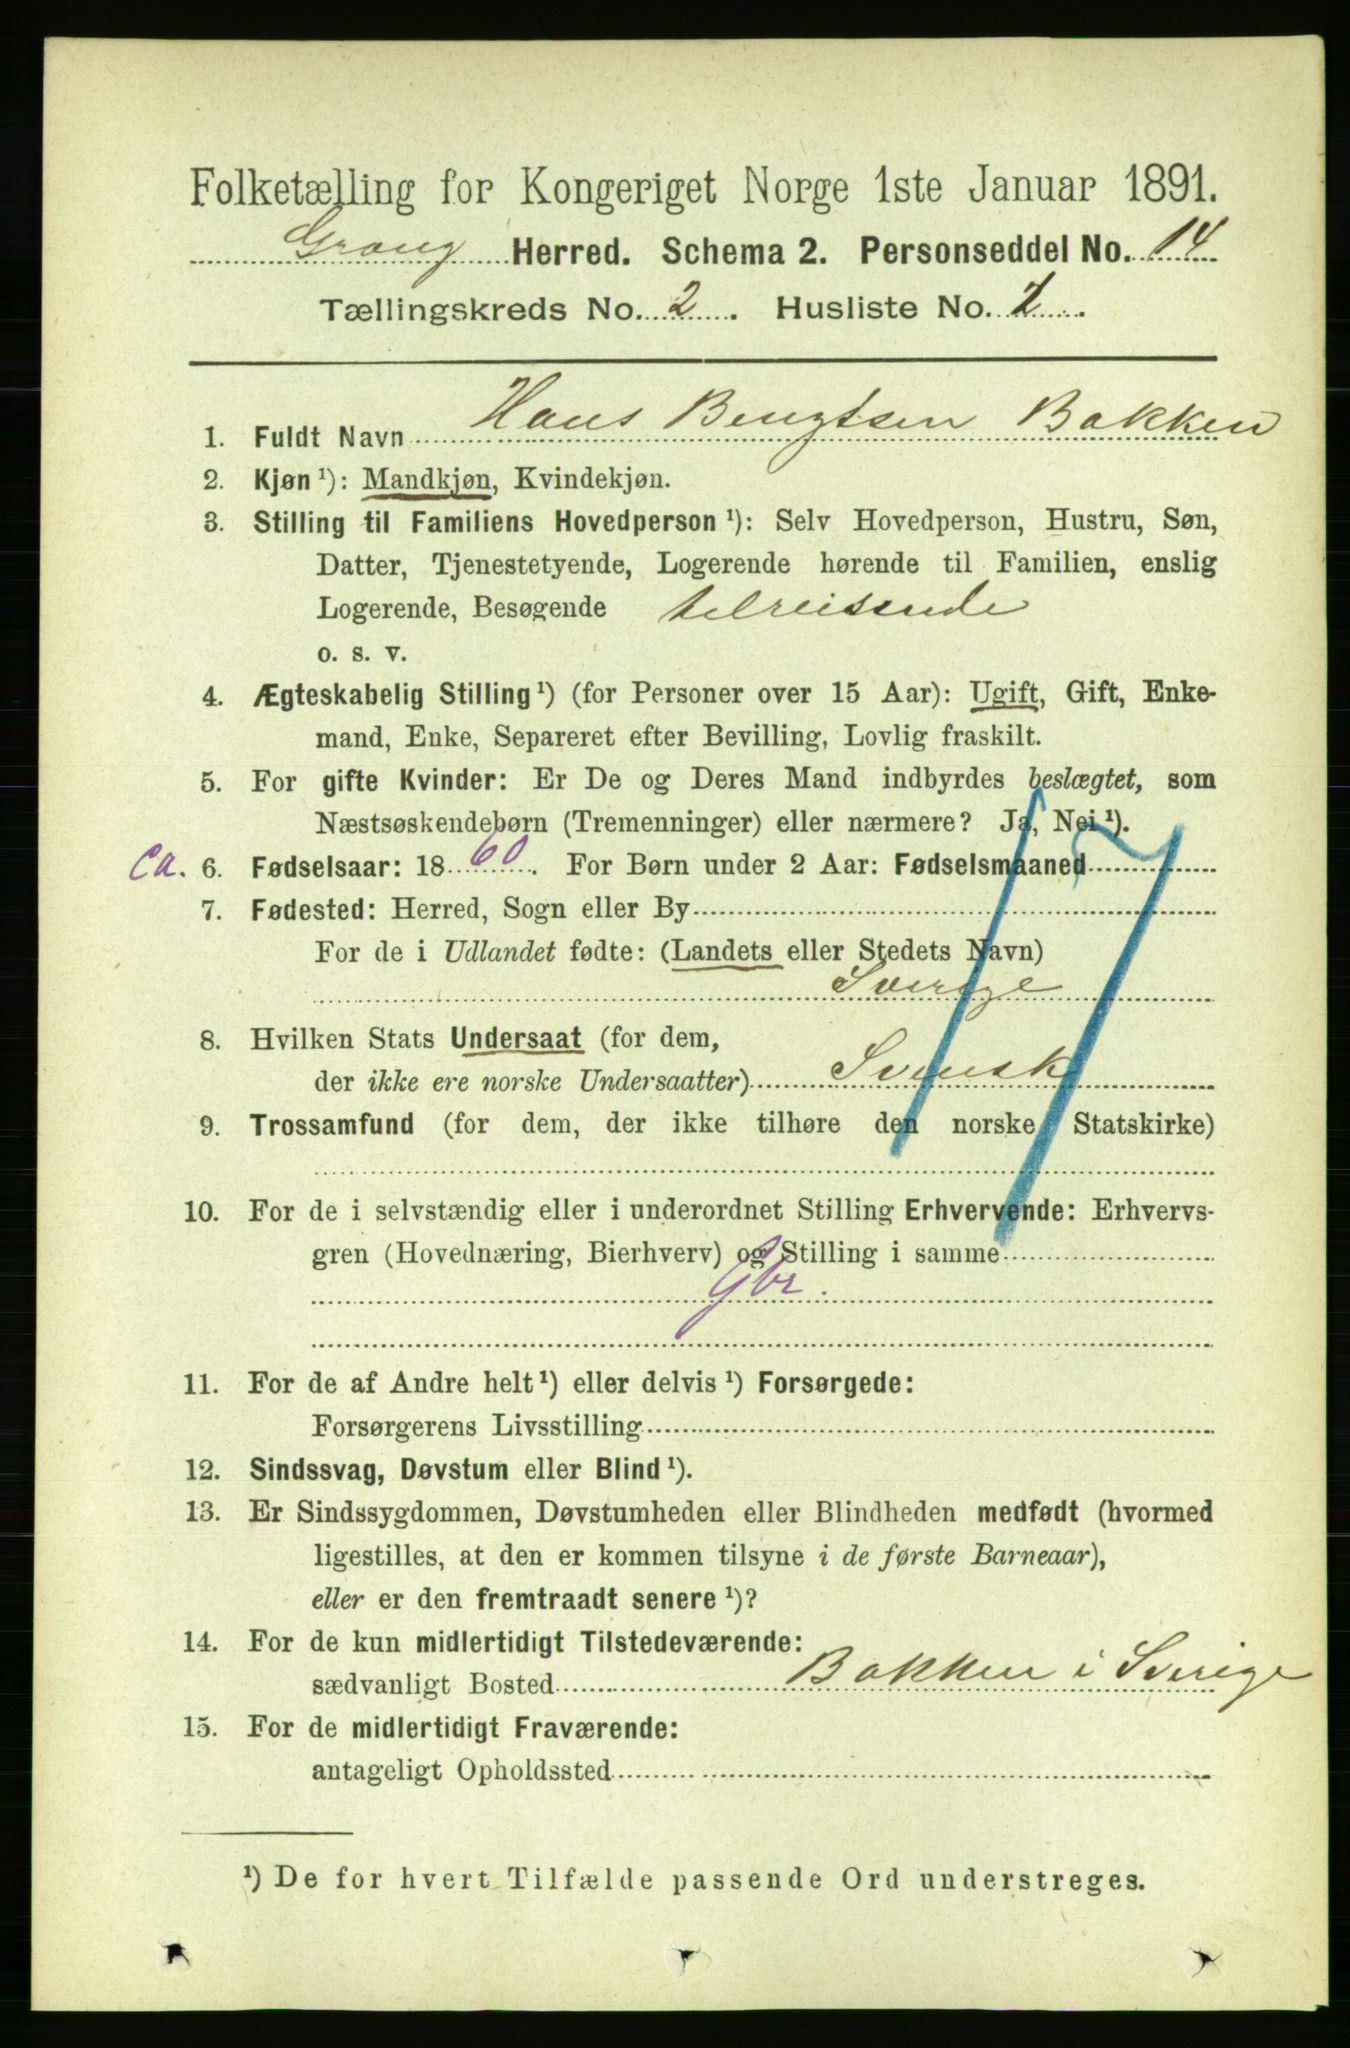 Folketælling for Kongeriget Norge 1ste Januar 1891.
Grong Herred. Schema 2. Personseddel No. 14
Tællingskreds No. 2. Husliste No. 7.
1. Fuldt Navn Hans Bengtsen Bakken
2. Kjøn ¹): Mandkjøn, Kvindekjøn.
3. Stilling til Familiens Hovedperson ¹): Selv Hovedperson, Hustru, Søn,
Datter, Tjenestetyende, Logerende hørende til Familien, enslig
Logerende, Besøgende tilreisende
o. s. v.
4. Ægteskabelig Stilling ¹) (for Personer over 15 Aar): Ugift, Gift, Enke-
mand, Enke, Separeret efter Bevilling, Lovlig fraskilt.
5. For gifte Kvinder: Er De og Deres Mand indbyrdes beslægtet, som
Næstsøskendebørn (Tremenninger) eller nærmere? Ja, Nei ¹).
ca. 6. Fødselsaar: 1860. For Børn under 2 Aar: Fødselsmaaned
7. Fødested: Herred, Sogn eller By
For de i Udlandet fødte: (Landets eller Stedets Navn)
Sverige
8. Hvilken Stats Undersaat (for dem,
der ikke ere norske Undersaatter) Svensk
17
9. Trossamfund (for dem, der ikke tilhøre den norske Statskirke)
10. For de i selvstændig eller i underordnet Stilling Erhvervende: Erhvervs-
gren (Hovednæring, Bierhverv) og Stilling i samme
Gbr.
11. For de af Andre helt ¹) eller delvis ¹) Forsørgede:
Forsørgerens Livsstilling
12. Sindssvag, Døvstum eller Blind ¹).
13. Er Sindssygdommen, Døvstumheden eller Blindheden medfødt (hvormed
ligestilles, at den er kommen tilsyne i de første Barneaar),
eller er den fremtraadt senere ¹)?
14. For de kun midlertidigt Tilstedeværende:
sædvanligt Bosted Bakken i Sverige
15. For de midlertidigt Fraværende:
antageligt Opholdssted
¹) De for hvert Tilfælde passende Ord understreges.